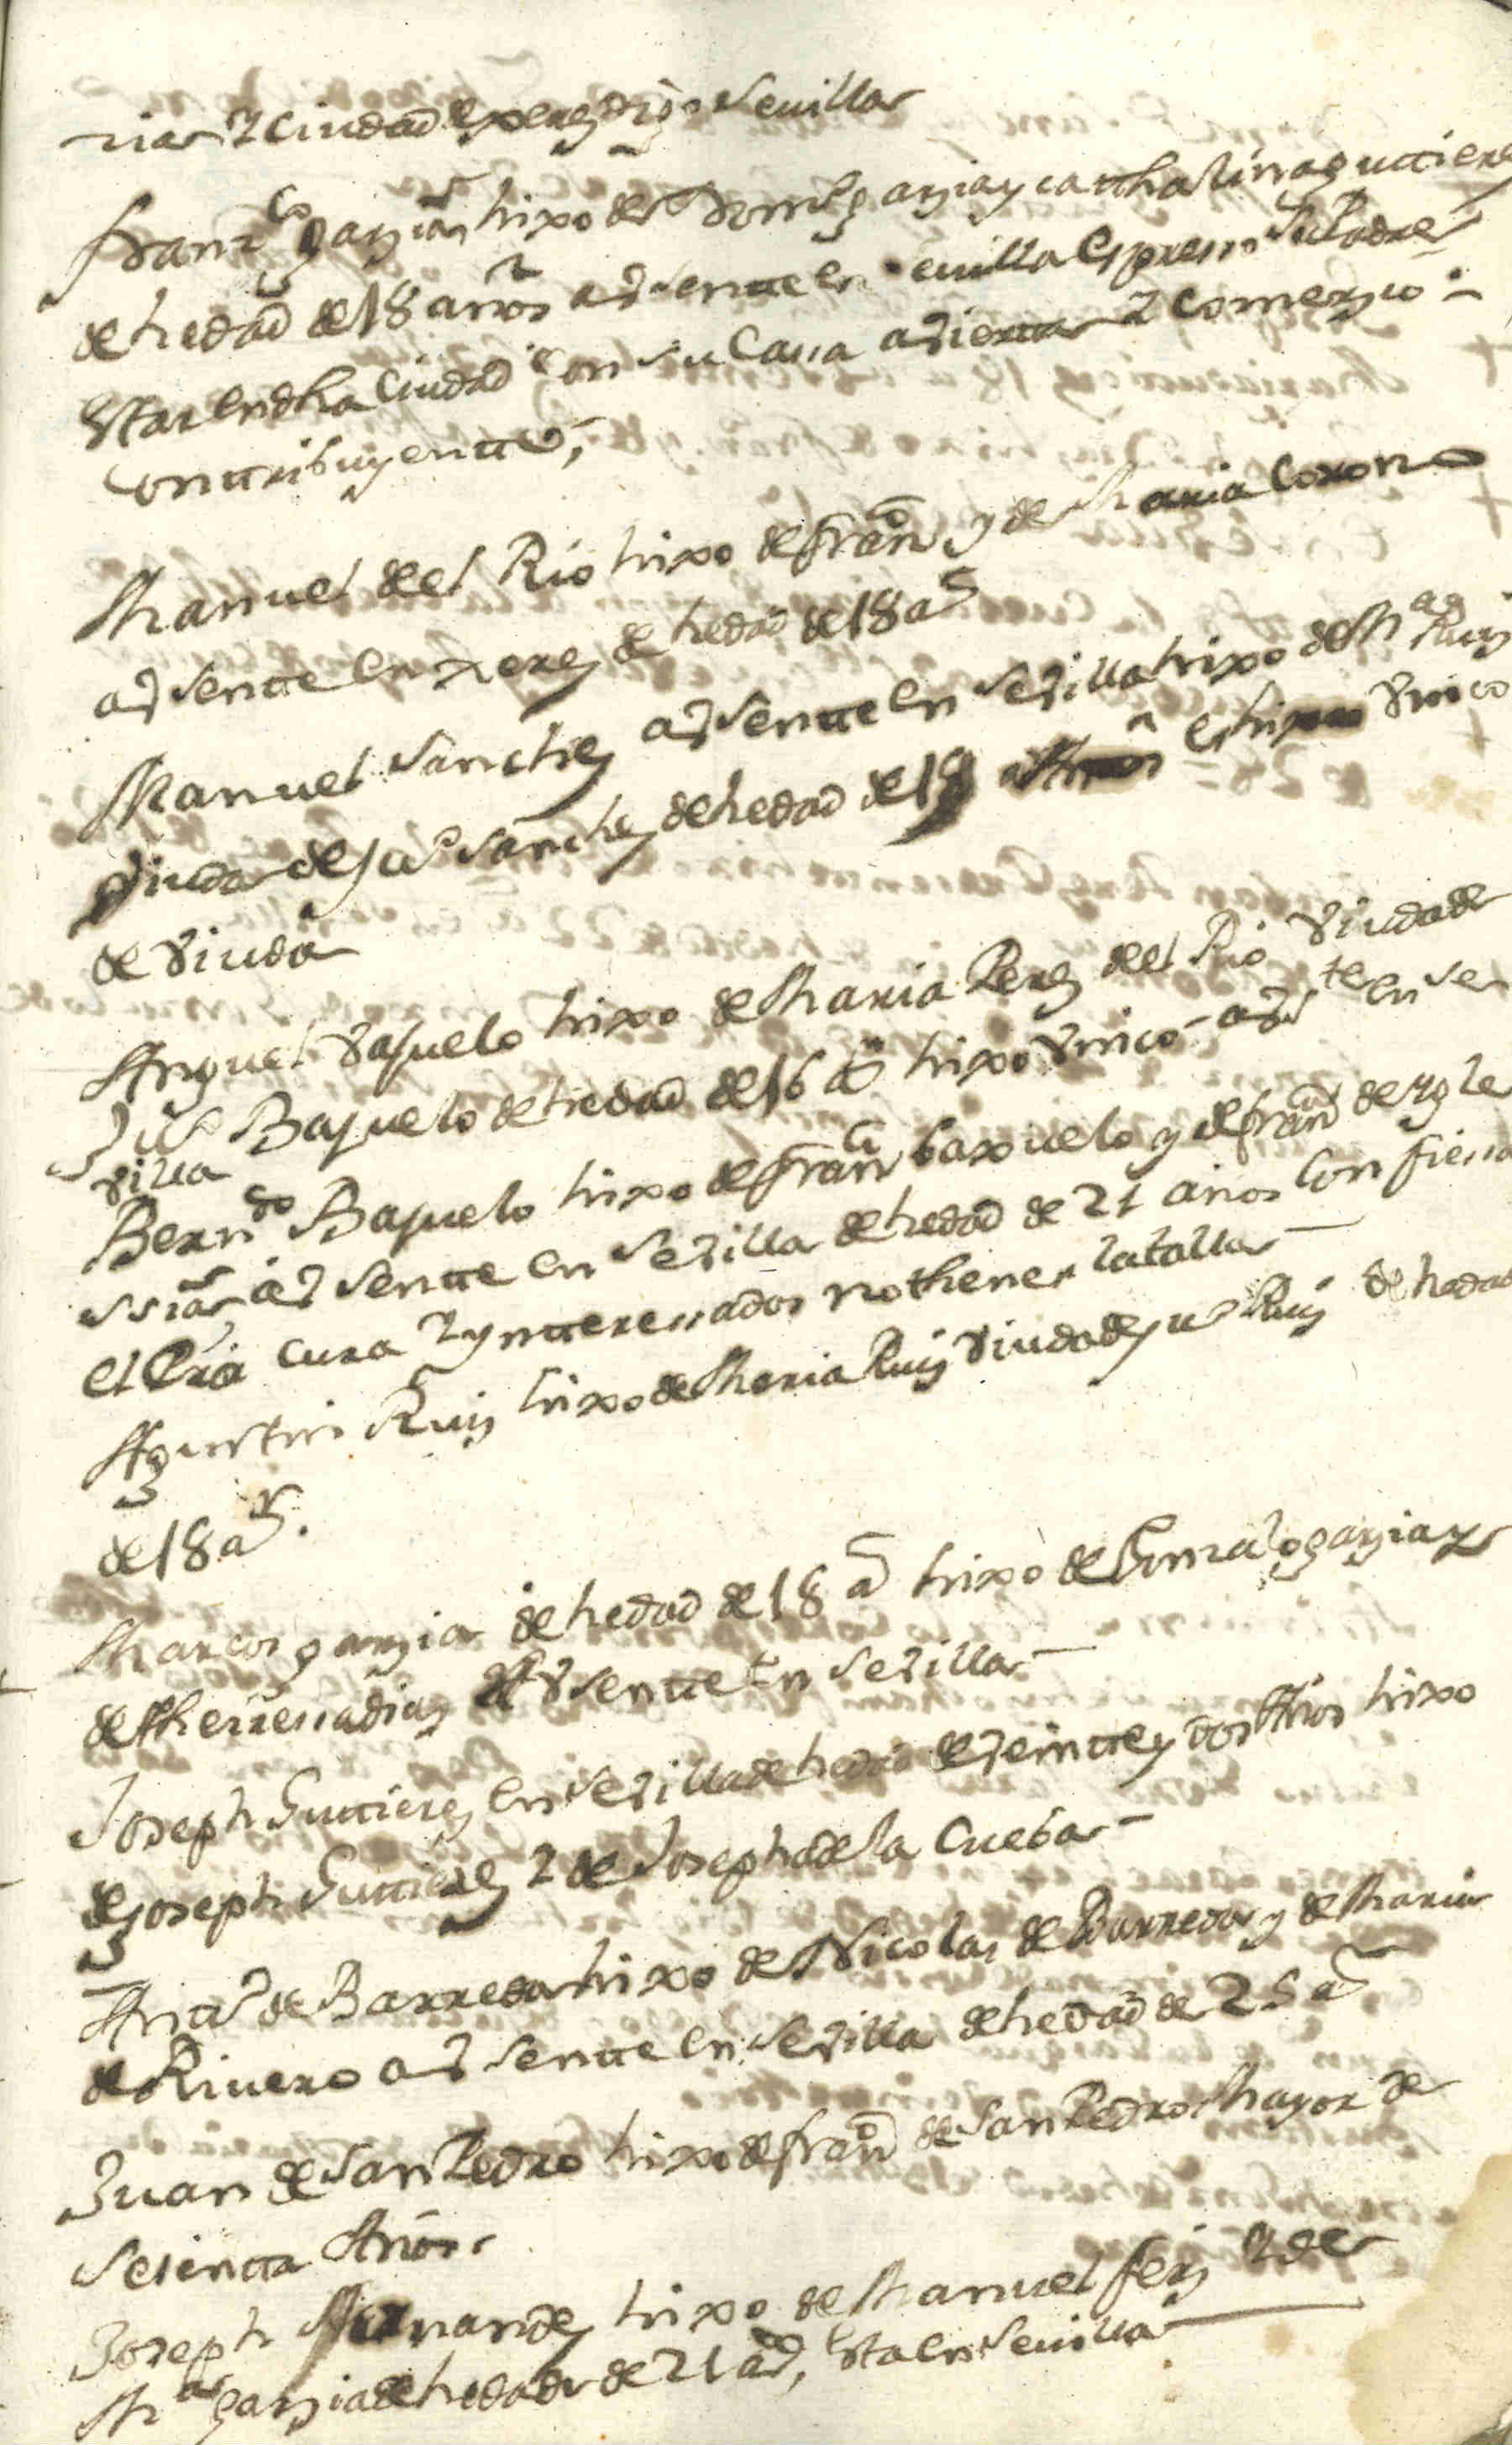 ria y ciudad de xerez digo Sevilla
Franco garzia hixo de Domgo garzia y catthalina guttierez
de hedad de 18 años ausentte en sevilla expresso su Padre
estar en dha Ciudad con su Casa avierta y comerzio
conttribuyentte,
Manuel del Rio hixo de frano y de Maria Corona
ausentte en xerez de hedad de 18 as
Manuel Sanchez ausentte en Sevilla hixo de Ma Ruiz
viuda de Juo Sanchez de hedad de 18 años es hixo vnico
de viuda
Anguel Vajuelo hixo de Maria Perez del Rio viuda de
Juo Bajuelo de hedad de 16 as hixo vnico auste en se
villa
Berndo Bajuelo hixo de frano baxuelo y de frana de ygle
ssia, ausentte en Sevilla de hedad de 21 años Confiesa
el Cura y ynttteresados no thener la talla
Agustin Ruiz hixo de Maria Ruiz viuda de Juo Ruiz de hedad
de 18 as.
Marcos garzia de hedad de 18 as hixo de Gonzalo garzia y
de Theressa diaz Ausentte en Sevilla
Joseph Guttierez en Sevilla de hedad de veintte y dos Años hixo
de Joseph Guttierez y de Josepha de la Cueba
Anto de Barreda hixo de Nicolas de Barreda y de Maria
de Rivero ausentte en Sevilla de hedad de 25 as
Juan de San Pedro hixo de frano de San Pedro Mayor de
Sesentta Años
Joseph Fernandez hixo de Manuel ferz y de
Ma garzia de hedad de 21 as, esta en Sevilla